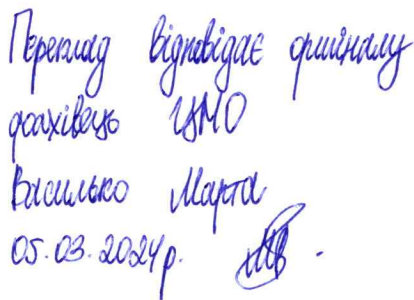 Переклад відповідає оригіналу
фахівець ЦМО
Василько Марта
05.03.2024 р.